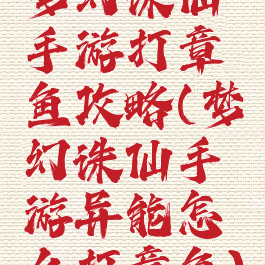 梦幻诛仙
手游打章
鱼攻略(梦
幻诛仙手
游异能怎
么打章鱼)